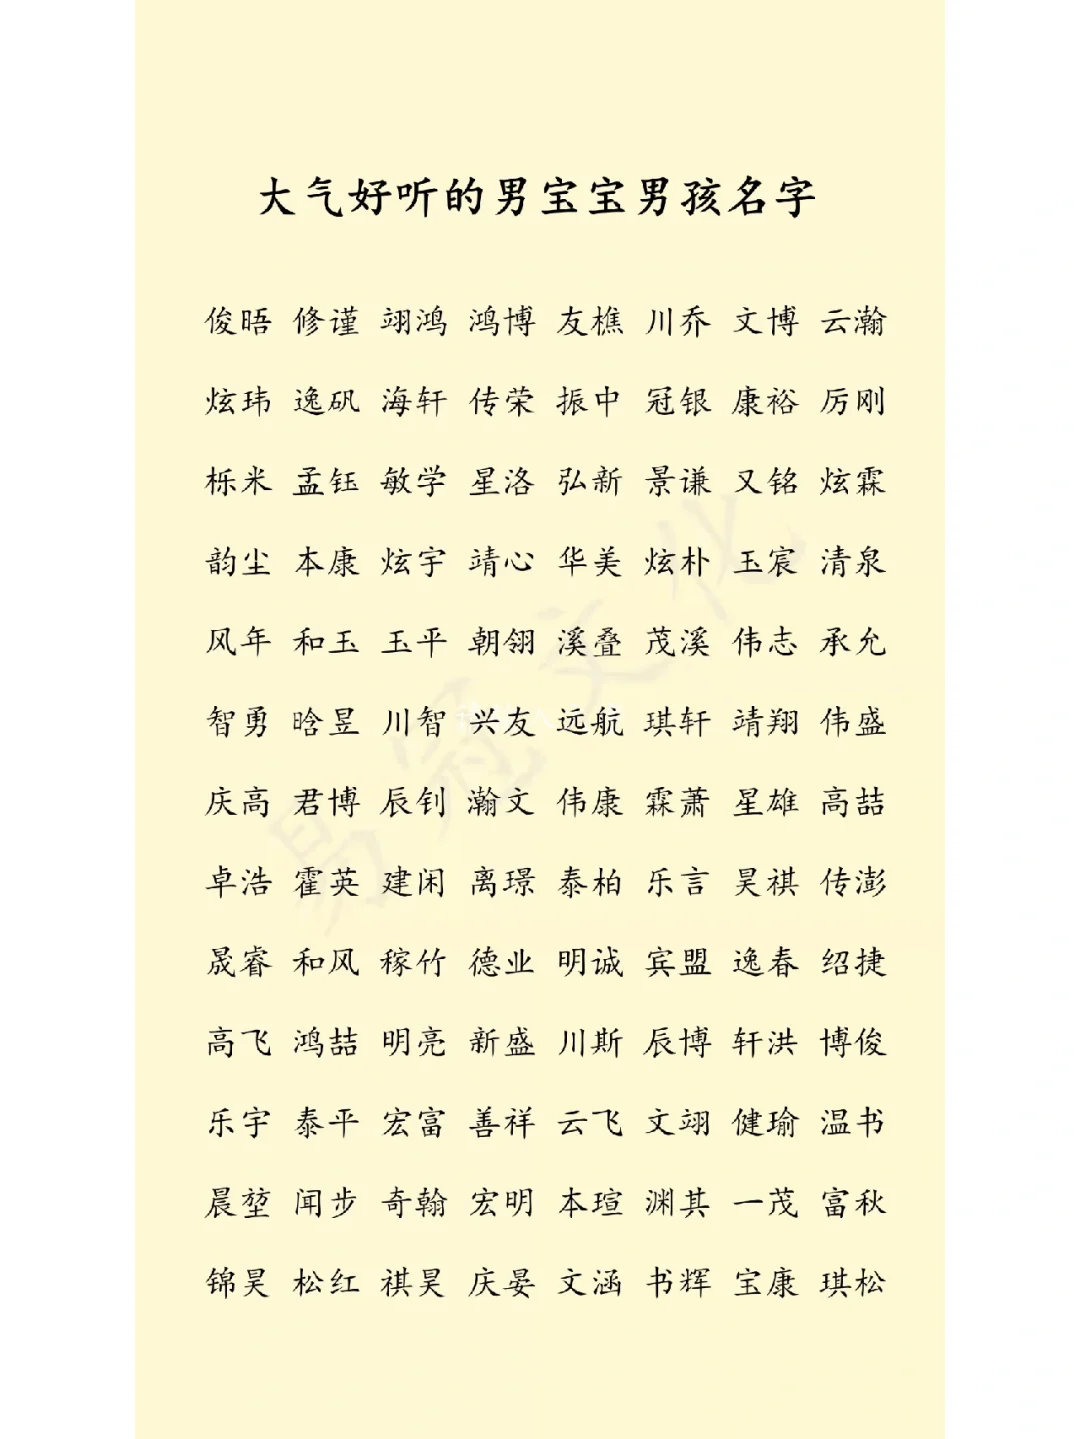 大气好听的男宝宝男孩名字
俊晤 修谨 翊鸿 鸿博 友樵 川乔 文博 云瀚
炫玮 逸矾 海轩 传荣 振中 冠银 康裕 厉刚
栎米 孟钰 敏学 星洛 弘新 景谦 又铭 炫霖
韵尘 本康 炫宇 靖心 华美 炫朴 玉宸 清泉
风年 和玉 玉平 朝翎 溪叠 茂溪 伟志 承允
智勇 晗昱 川智 兴友 远航 琪轩 靖翔 伟盛
庆高 君博 辰钊 瀚文 伟康 霖萧 星雄 高喆
卓浩 霍英 建闲 离璟 泰柏 乐言 昊祺 传澎
晟睿 和风 稼竹 德业 明诚 宾盟 逸春 绍捷
高飞 鸿喆 明亮 新盛 川斯 辰博 轩洪 博俊
乐宇 泰平 宏富 善祥 云飞 文翊 健瑜 温书
晨堃 闻步 奇翰 宏明 本瑄 渊其 一茂 富秋
锦昊 松红 祺昊 庆晏 文涵 书辉 宝康 琪松
易冠文化